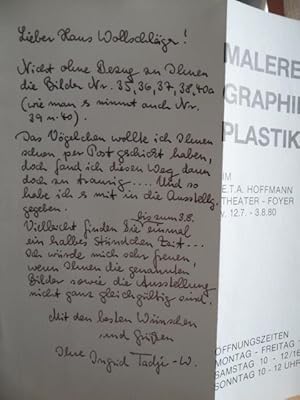 Lieber Hans Wollschläger!
Nicht ohne Bezug zu Ihnen
die Bilder Nr. 35, 36, 37, 38, 40a
(wie man's nimmt auch Nr.
39 u. 40).
Das Vögelchen wollte ich Ihnen
schon per Post geschickt haben,
doch fand ich diesen Weg dann
doch zu traurig.... Und so
habe ich's mit in die Ausstellg.
gegeben.
bis zum 3.8.
Vielleicht finden Sie einmal
ein halbes Stündchen Zeit...
Ich würde mich sehr freuen,
wenn Ihnen die genannten
Bilder sowie die Ausstellung
nicht ganz gleichgültig sind.
Mit den besten Wünschen
und Grüßen
Ihre Ingrid Tadje-W.
MALERE
GRAPHI
PLASTIK
IM
E.T.A. HOFFMANN
THEATER - FOYER
v. 12.7. - 3.8.80
ÖFFNUNGSZEITEN
MONTAG - FREITAG
SAMSTAG 10 - 12/16
SONNTAG 10 - 12 UHR